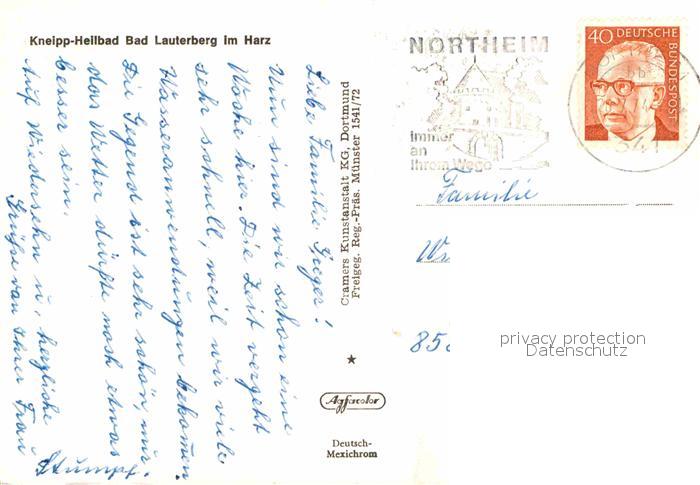 Kneipp-Heilbad Bad Lauterberg im Harz
Liebe Familie Gieger!
Nun sind wir schon eine
Woche hier. Die Zeit vergeht
sehr schnell, weil wir viele
Wasseranwendungen bekommen.
Die Gegend ist sehr schön, nur
das Wetter dürfte noch etwas
besser sein.
Auf Wiedersehn u. herzliche
Grüße von Ihrer Frau
Stumpf.
Cramers Kunstanstalt KG, Dortmund
Freigeg. Reg.-Präs. Münster 1541/72
Agfacolor
Deutsch-
Mexichrom
NORTHEIM
immer
an
Ihrem Wege
40 DEUTSCHE
BUNDESPOST
341
Familie
85
privacy protection
Datenschutz